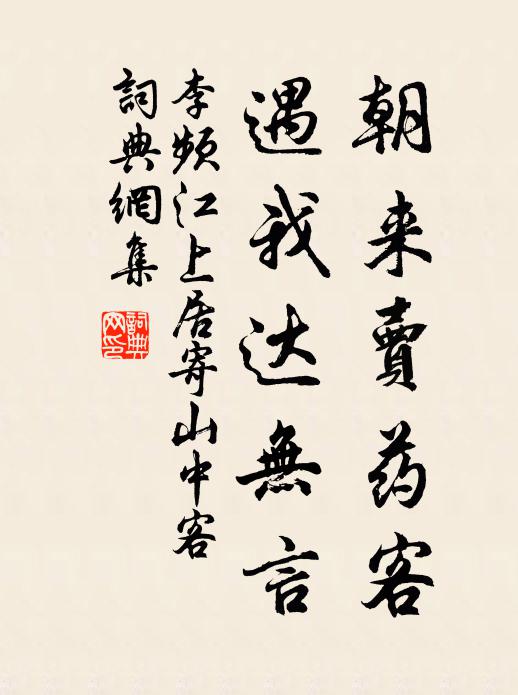 朝来賣药客
遇我达無言
李频江上居寄山中客
詞典網集
詞典网印